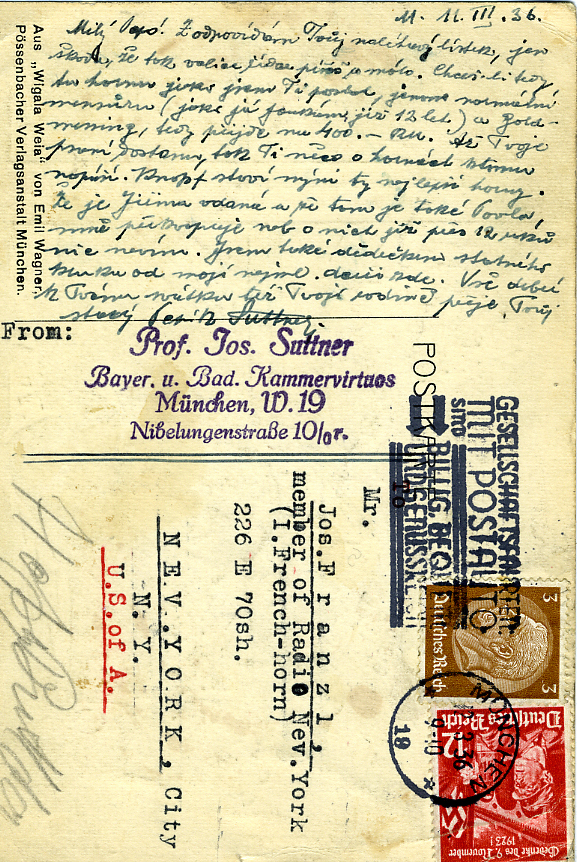 M. 11. III. 36.
Milý Pepo! Zodpovídám Tvůj lístek, jen
škoda, že tak velice píšeš a málo. Chceš-li
tu hornu jako jsem Ti poslal, normální
mensuru (jako já foukám již 12 let) a Gold-
messing, tedy přijde na 400.- RM. Až Tvoje
psaní dostanu, tak Ti něco o hornách
napíši. Knopf staví nyní ty nejlepší horny.
Že je Jiřina vdaná a že tam je také
mně překvapuje neb o nich již přes 12 roků
nic nevím. Jsem také dědečkem statného
kluka od mojí nejml. zde. Vše dobré
k Tvému svátku též Tvojí rodině přeje Tvůj
starý Suttner
Aus „Wigala Weia" von Emil Wagner.
Pössenbacher Verlagsanstalt München.
From:
Prof. Jos. Suttner
Bayer. u. Bad. Kammervirtuos
München, W. 19
Nibelungenstraße 10/0r.
POSTKARTE
GESELLSCHAFTSFAHRTEN
MIT POSTAUTO
SIND
BILLIG, BEQUEM
UND GENUSSREICH
To
Mr.
Jos. F r a n z l ,
member of Radio Nev.York
(I.French-horn)
226 E 70sh.
N E V . Y O R K , City
N. Y.
U.S.of A.
3
3
Deutsches Reich
MÜNCHEN
3.36
9-10
19
Deutsches Reich
12
Gedenke des 9. November
1923!